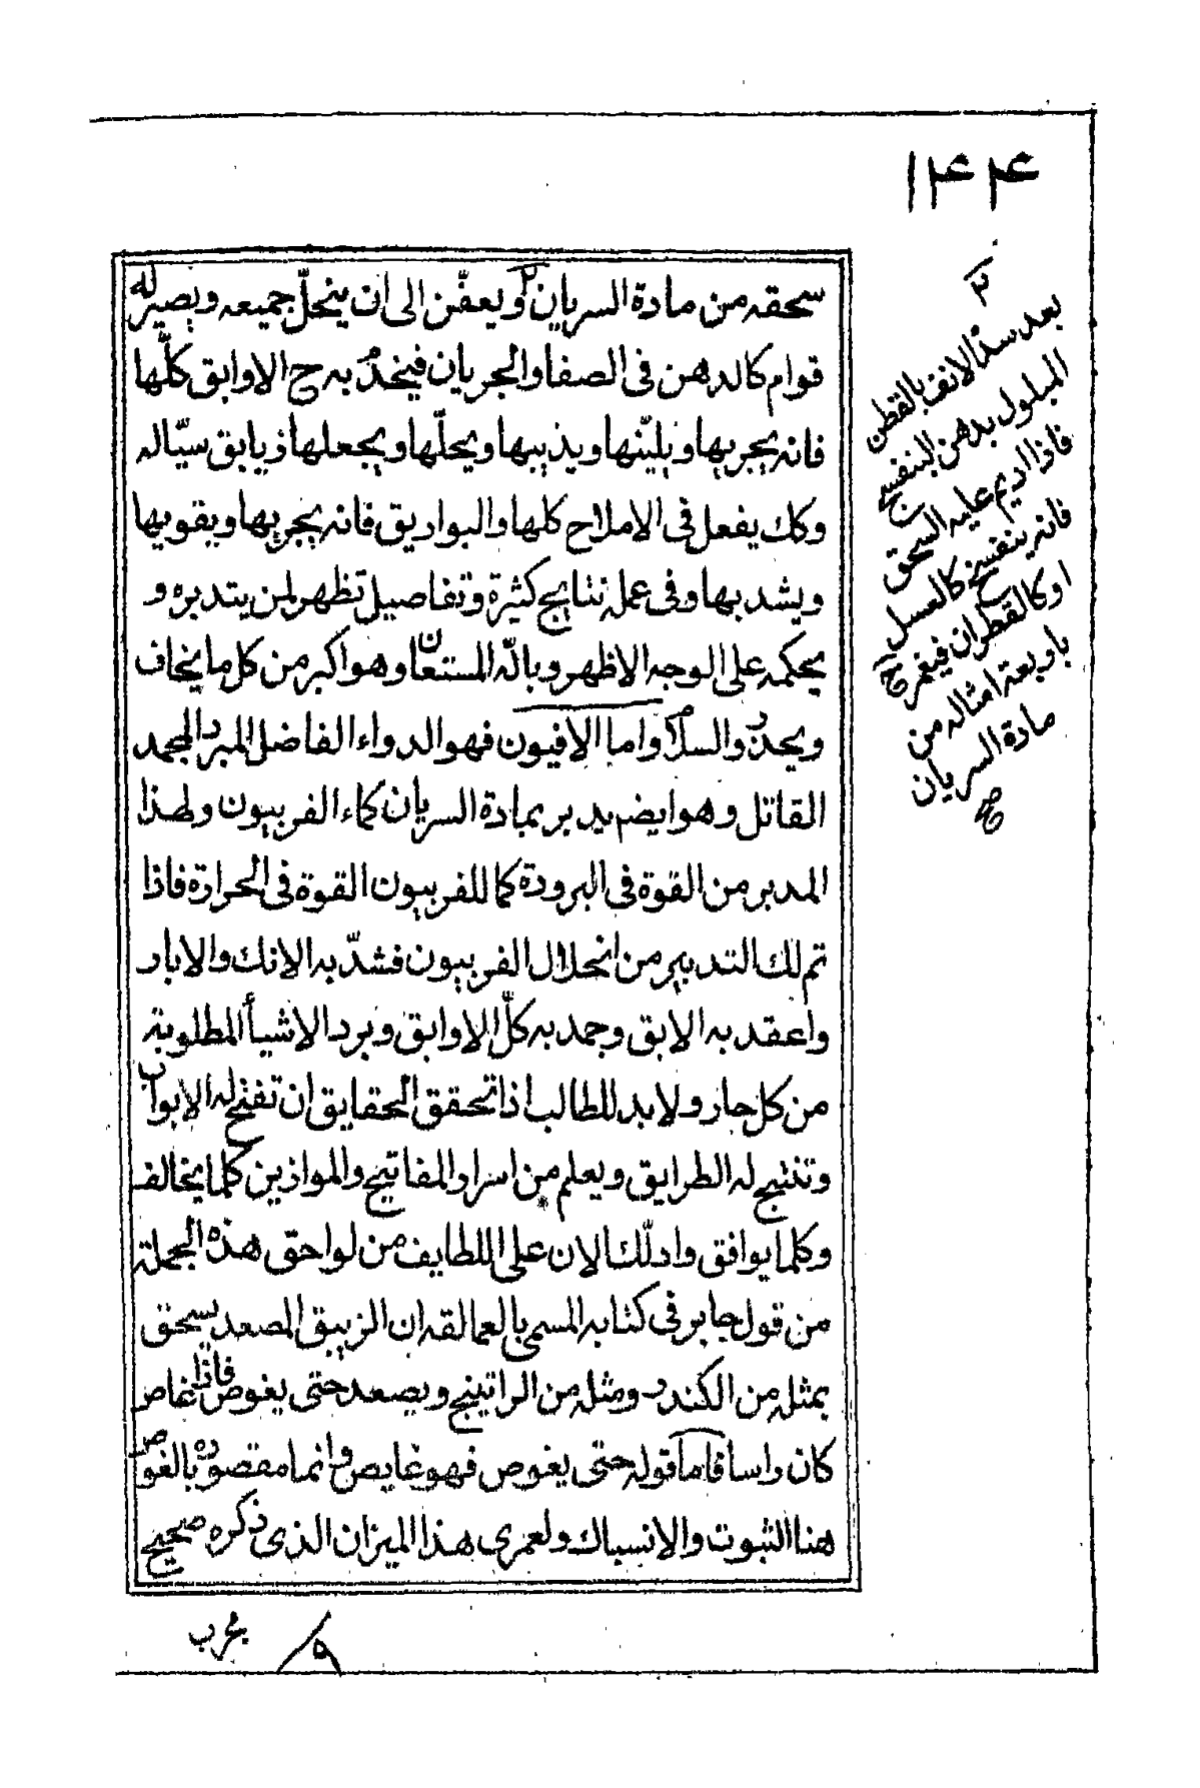 ١۴۴
سحقه من مادة السريان ٢ ويعفّن الى ان ينحلّ جميعه ويصير له
قوام كالدهن فى الصفا والجريان فيخذ به ح الاوابق كلّها
فانه يجريها ويليّنها ويذيبها ويحلّها ويجعلها زيابق سيّاله
وكك يفعل فى الاملاح كلها والبواريق فانه يجريها ويقويها
ويشد بها وفى عمله نتايج كثيرة وتفاصيل تظهر لمن يتدبره و
يحكمه على الوجه الاظهر وبالله المستعان وهو اكبر من كل ما يخاف
ويحذر والسلام واما الافيون فهو الدواء الفاضل المبرد المجمد
القاتل وهو ايضم يدبر بمادة السريان كماء الفربيون ولهذا
المدبر من القوة فى البرودة كما للفربيون القوة فى الحرارة فاذا
تم لك التدبير من انحلال الفربيون فشدّ به الانك والابار
واعقد به الابق وجمد به كلّ الاوابق وبرد الاشيأ المطلوبة
من كل حار ولا بد للطالب اذا تحقق الحقايق ان تفتح له الابواب
وتنتج له الطرايق ويعلم من اسرار المفاتيح والموازين كلما يخالف
وكلما يوافق وادلّك الان على اللطايف من لواحق هذه الجملة
من قول جابر فى كتابه المسمى بالعمالقه ان الزيبق المصعد يسحق
بمثله من الكندر ومثله من الراتينج ويصعد حتى يغوص فاذا غاص
كان راسا فاما قوله حتى يغوص فهو غايص وانما مقصوده بالغوص
هنا الثبوت والانسباك ولعمرى هذا الميزان الذى ذكره صحيح
٢
بعد سدّ الانف بالقطن
المبلول بدهن البنفسج
فاذا اديم عليه السحق
فانه ينفسخ كالعسل
او كالقطران فيغمر ح
باربعة امثاله من
مادة السريان
صح
٩